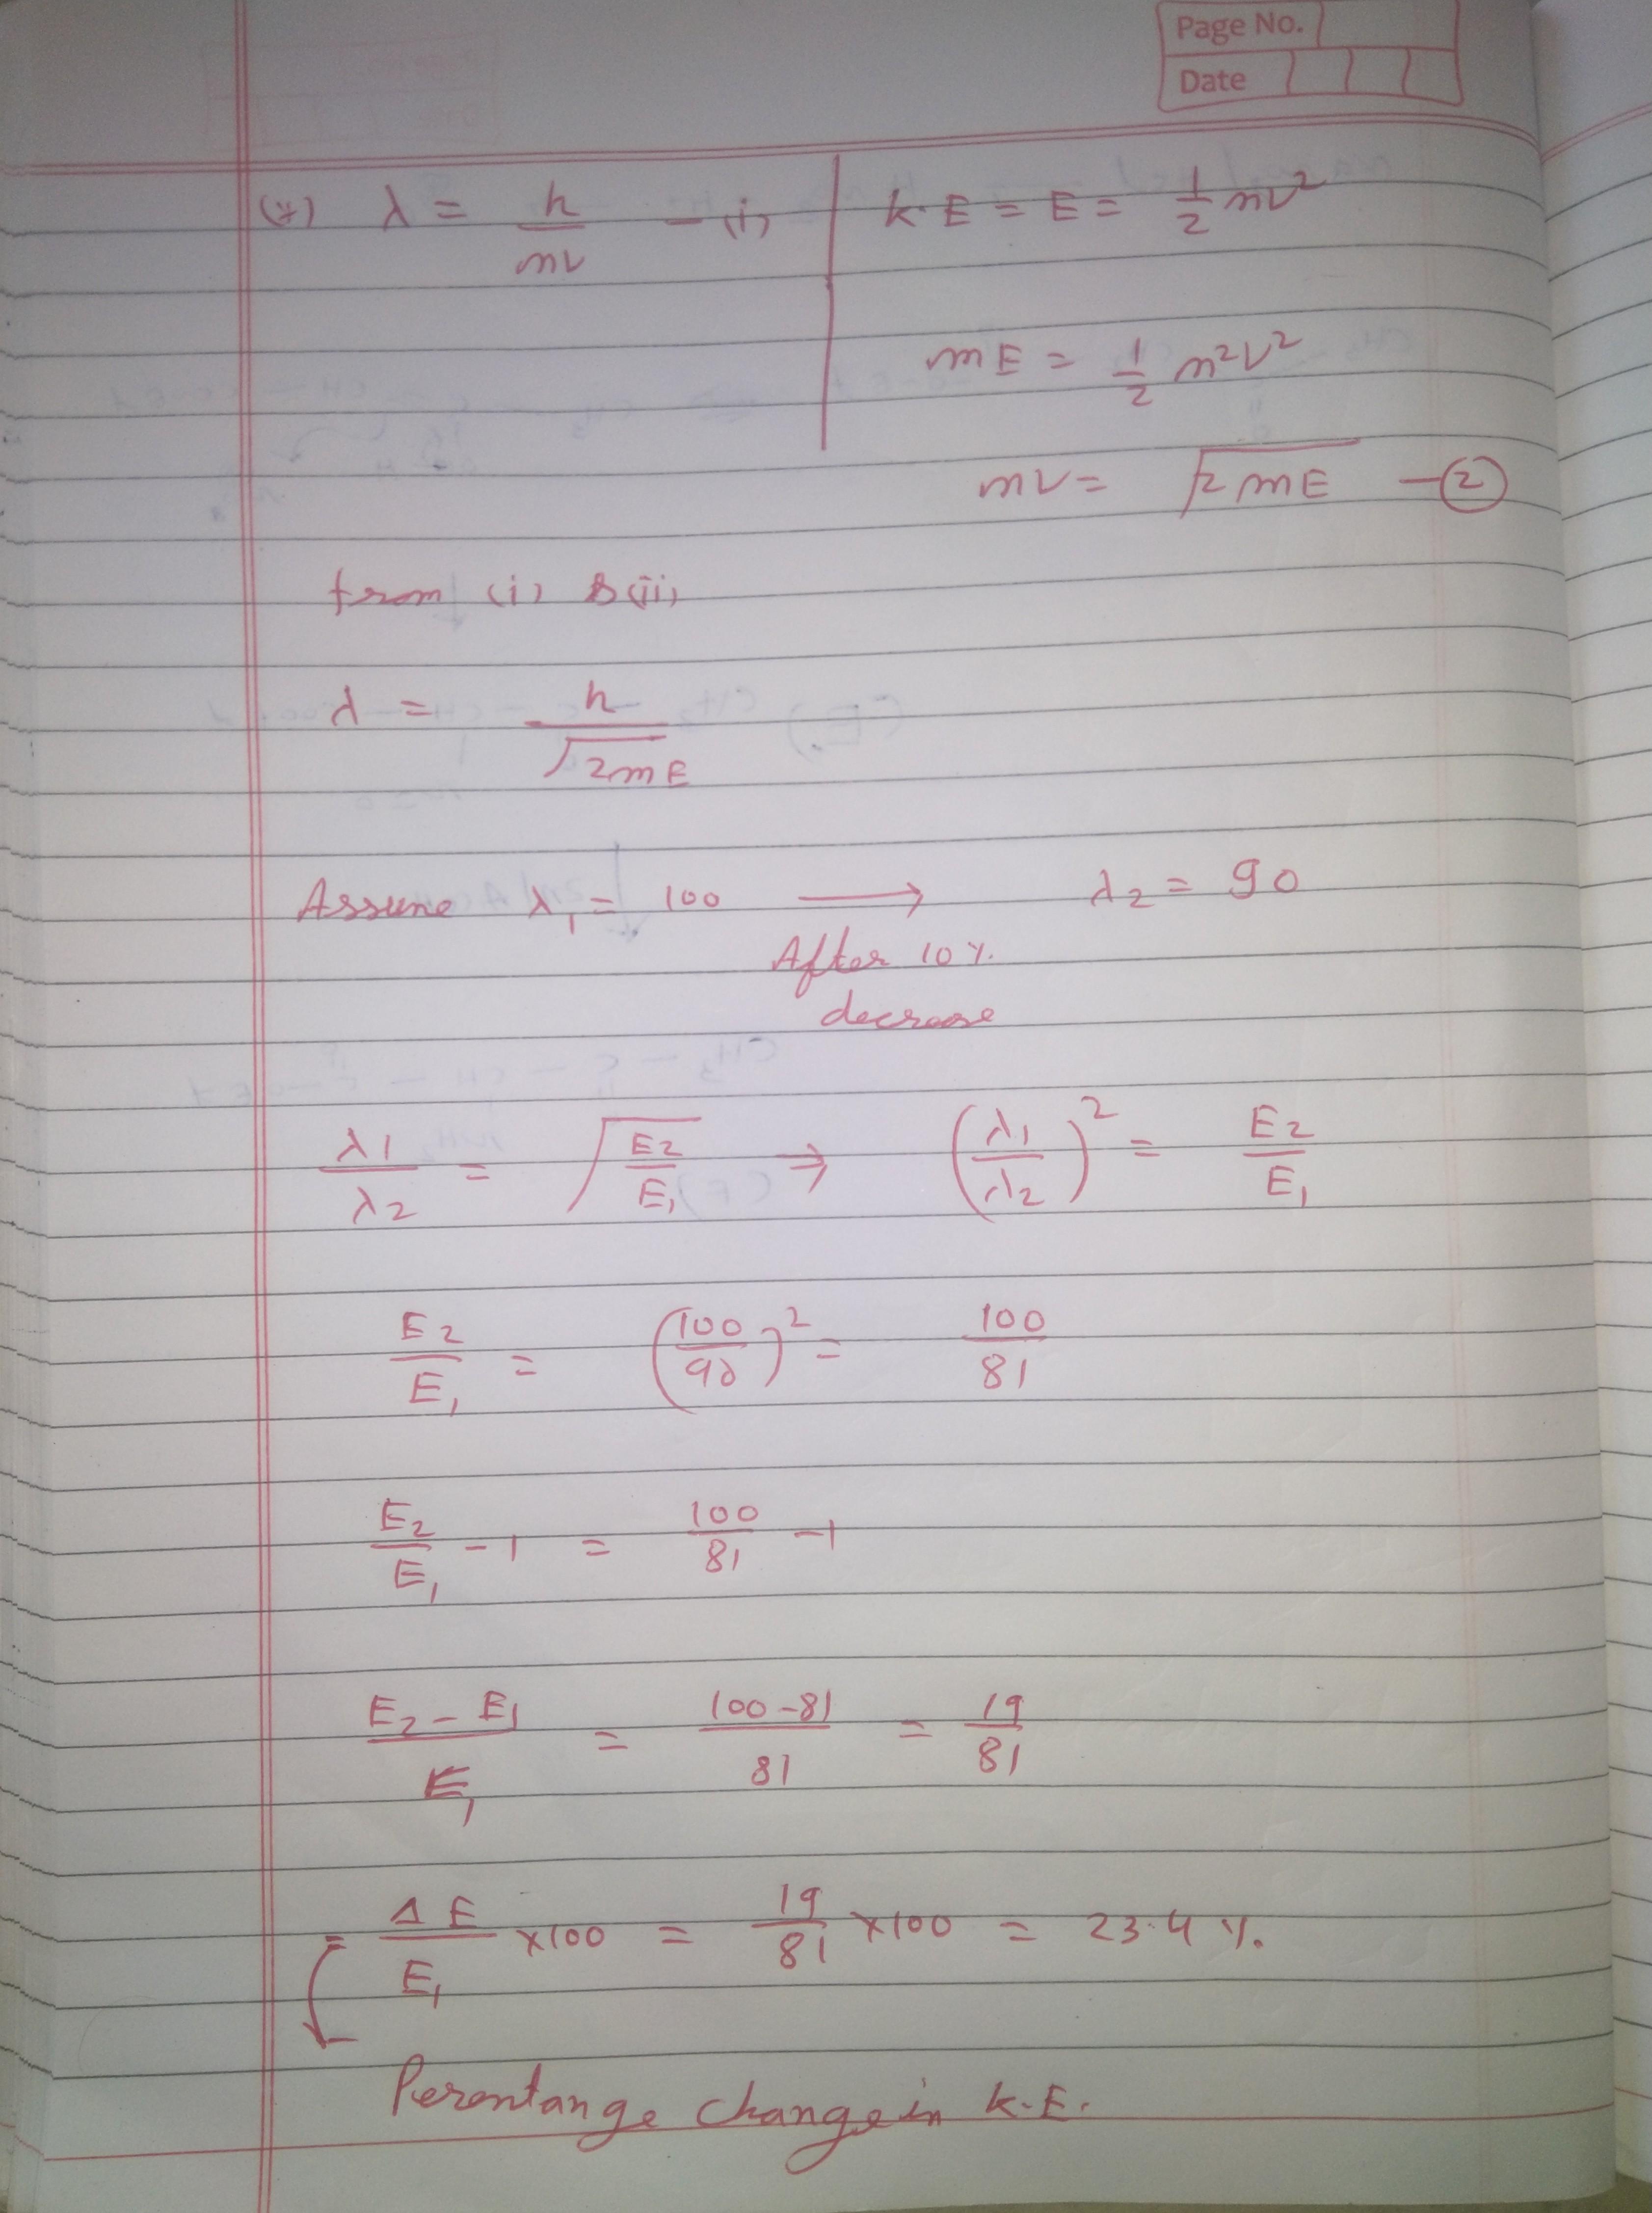 Page No.
Date
(*) λ = h/mv - (i)
K.E = E = 1/2 mv²
mE = 1/2 m²v²
mv = √2mE - (2)
from (i) & (ii)
λ = h/√2mE
Assume λ₁ = 100 ⟶ λ₂ = 90
After 10%
decrease
λ1/λ2 = √(E2/E₁) ⇒ (λ1/λ2)² = E2/E₁
E2/E₁ = (100/90)² = 100/81
E2/E₁ - 1 = 100/81 - 1
E2 - E₁/E₁ = 100-81/81 = 19/81
= ΔE/E₁ ×100 = 19/81 ×100 = 23.4 %.
Perentange change in K.E.